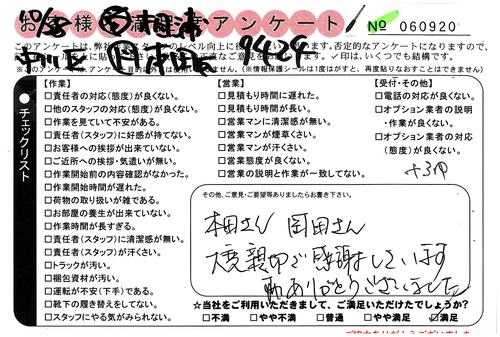 お客様満足アンケート
№ 060920
9424
このアンケートは、弊社
否定的なアンケートになりますので、
✓印は、いくつでも結構です。
※このアンケートは、
(※情報保護シールは1度はがすと、再度貼りなおすことはできません)
チェックリスト
【作業】
□責任者の対応(態度)が良くない。
□他のスタッフの対応(態度)が良くない。
□作業を見ていて不安がある。
□責任者(スタッフ)に好感が持てない。
□お客様への挨拶が出来ていない。
□ご近所への挨拶・気遣いが無い。
□作業開始前の内容確認がなかった。
□作業開始時間が遅れた。
□荷物の取り扱いが雑である。
□お部屋の養生が出来ていない。
□作業時間が長すぎる。
□責任者(スタッフ)に清潔感が無い。
□責任者(スタッフ)が汗くさい。
□トラックが汚い。
□梱包資材が汚い。
□運転が不安(下手)である。
□靴下の履き替えをしてない。
□スタッフにやる気がみられない。
【営業】
□見積もり時間に遅れた。
□見積もり時間が長い。
□営業マンに清潔感が無い。
□営業マンが煙草くさい。
□営業マンが汗くさい。
□営業態度が良くない。
□営業の説明と作業が一致してない。
【受付・その他】
□電話の対応が良くない。
□オプション業者の説明
・作業が良くない。
□オプション業者の対応
(態度)が良くない。
その他、ご意見・ご要望等ありましたらお書き下さい。
本田さん 岡田さん
大変親切で感謝しています
ありがとうございました
☆当社をご利用いただきまして、ご満足いただけたでしょうか?
□不満 □やや不満 □普通 □やや満足 ☑満足